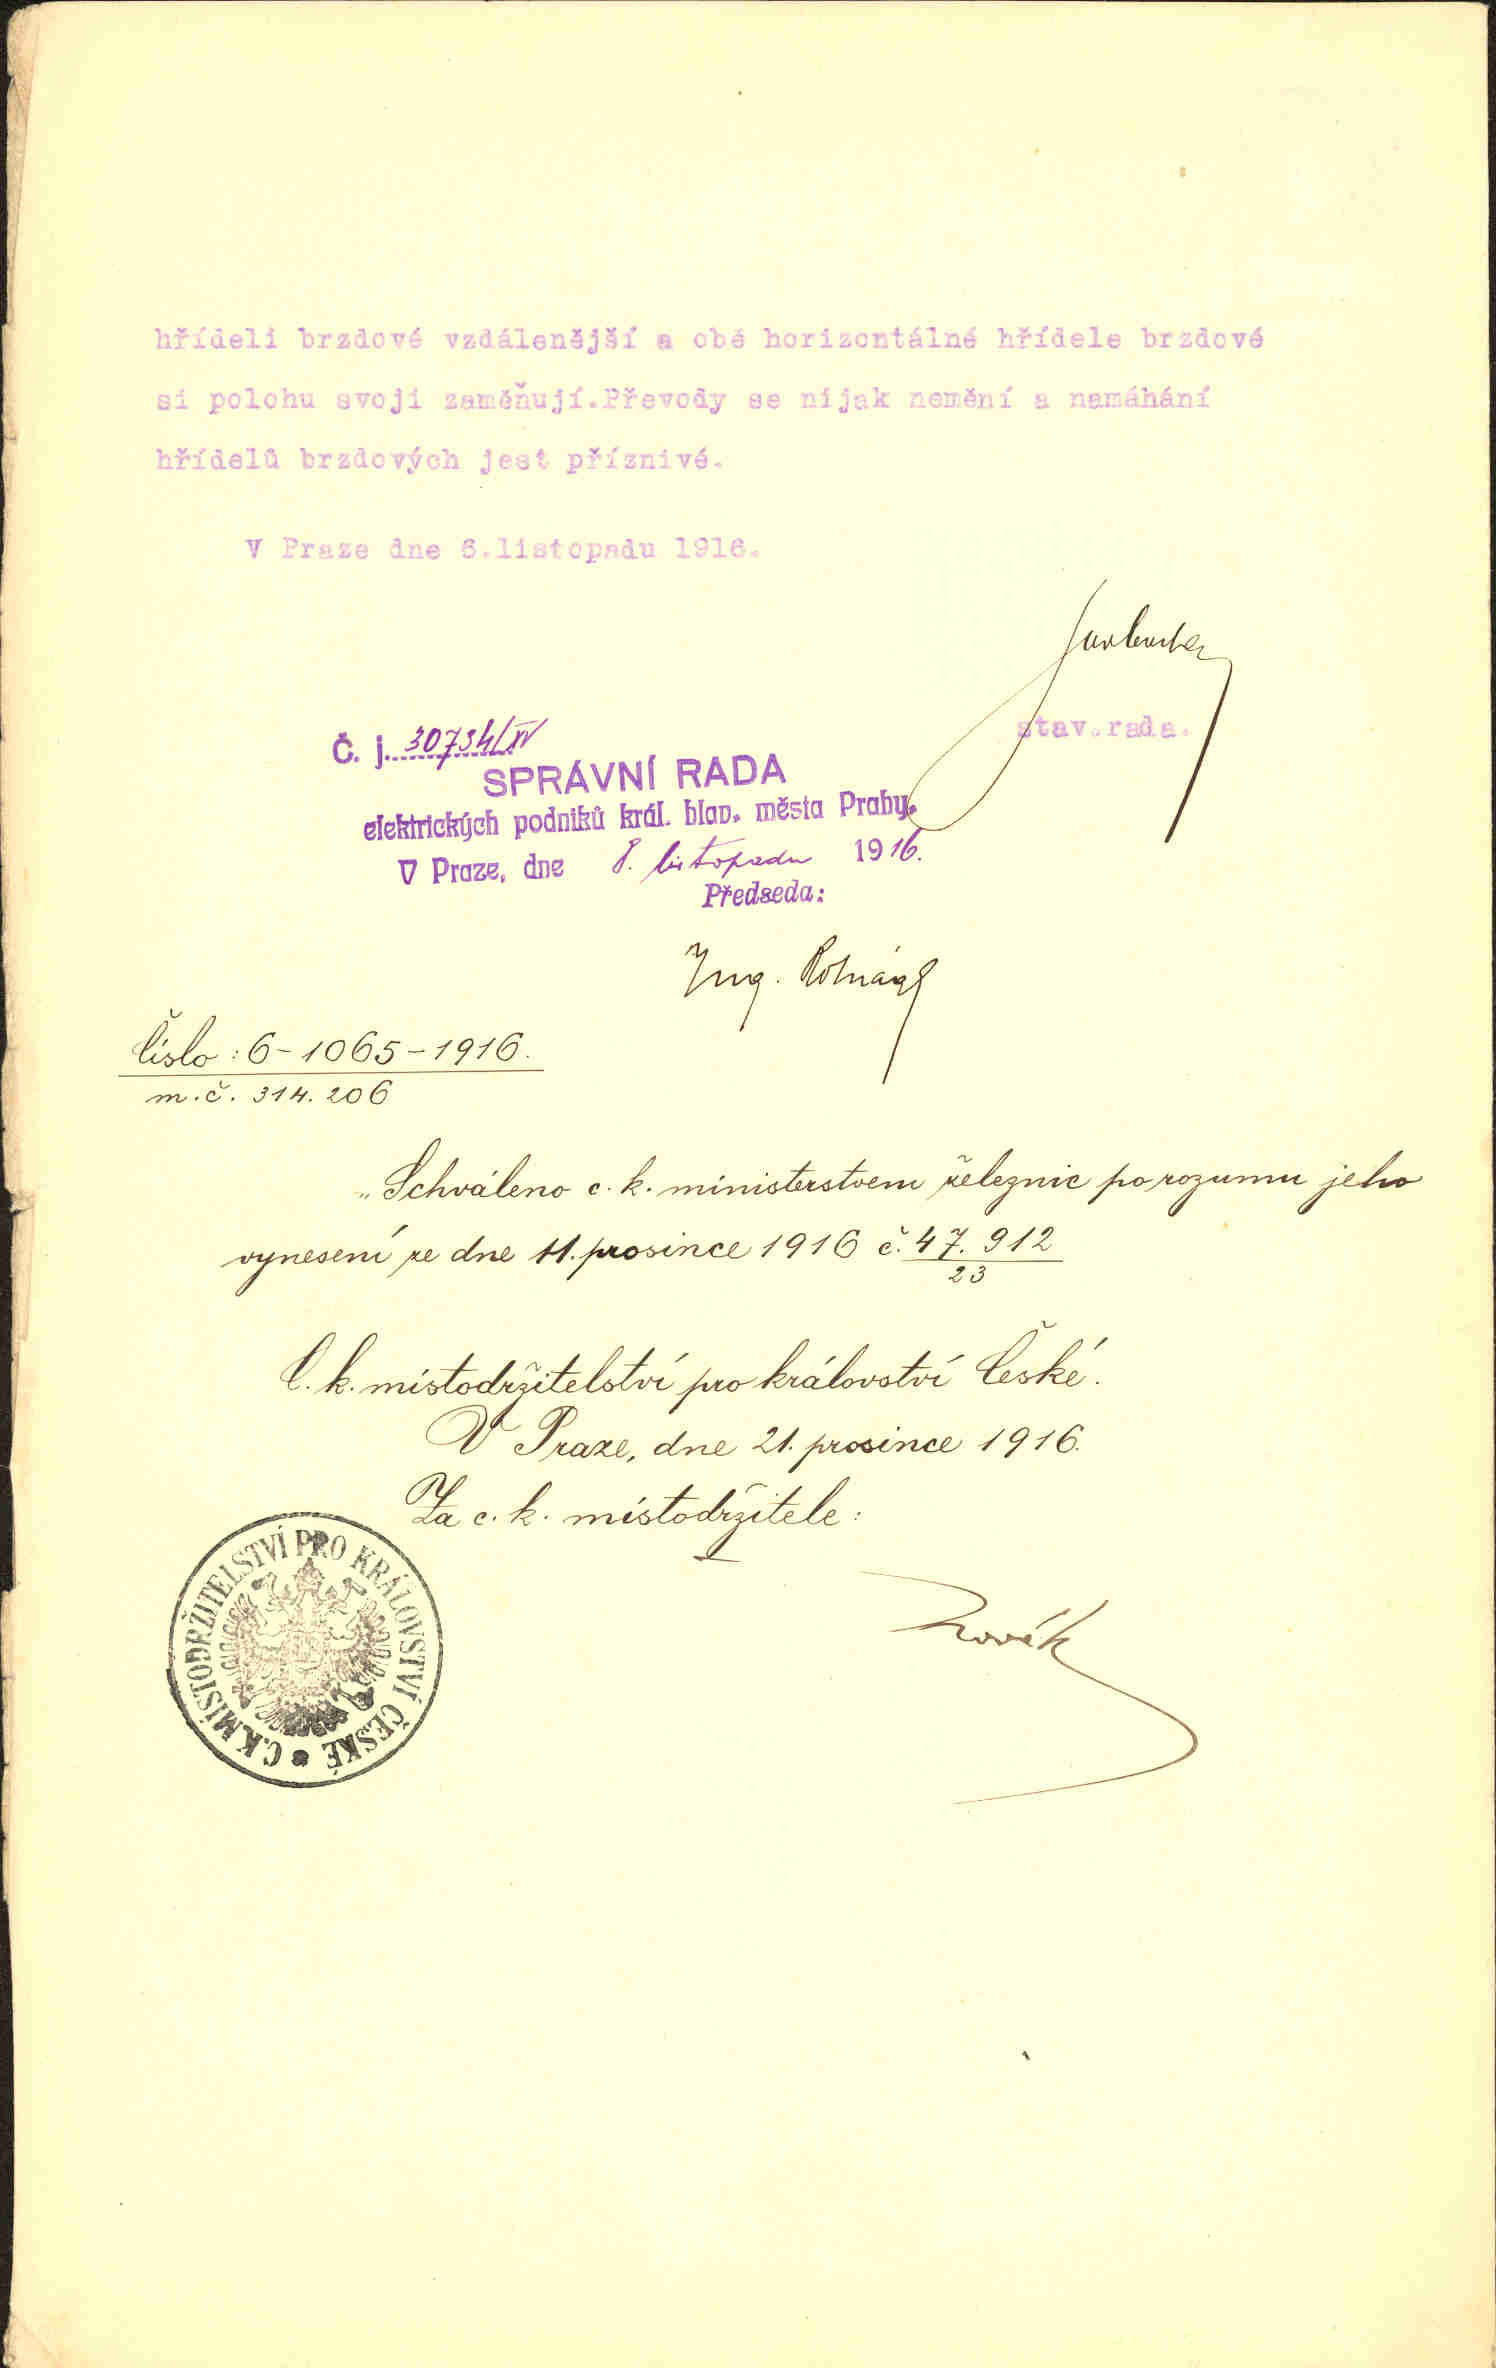 hřídeli brzdové vzdálenější a obě horizontálné hřídele brzdové
si polohu svoji zaměňují.Převody se nijak nemění a namáhání
hřídelů brzdových jest příznivé.
V Praze dne 6.listopadu 1916.
stav.rada.
Č. j. 30734/IV
SPRÁVNÍ RADA
elektrických podniků král. hlav. města Prahy.
V Praze, dne 8. listopadu 1916.
Předseda:
Ing. Rotnágl
Číslo: 6-1065-1916.
m.č. 314.206
„Schváleno c. k. ministerstvem železnic po rozumu jeho
vynesení ze dne 11. prosince 1916 č. 47.912
23
C. k. místodržitelství pro království České.
V Praze, dne 21. prosince 1916.
Za c. k. místodržitele:
Novák
C.K.MÍSTODRŽITELSTVÍ PRO KRÁLOVSTVÍ ČESKÉ